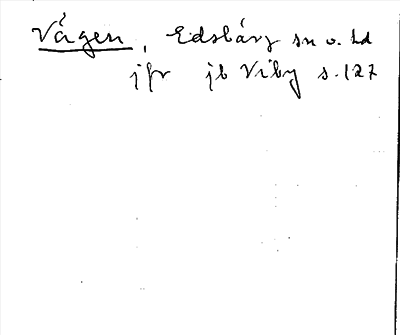 Vågen, Edsbärg sn o. hd
jfr jb Viby s. 127